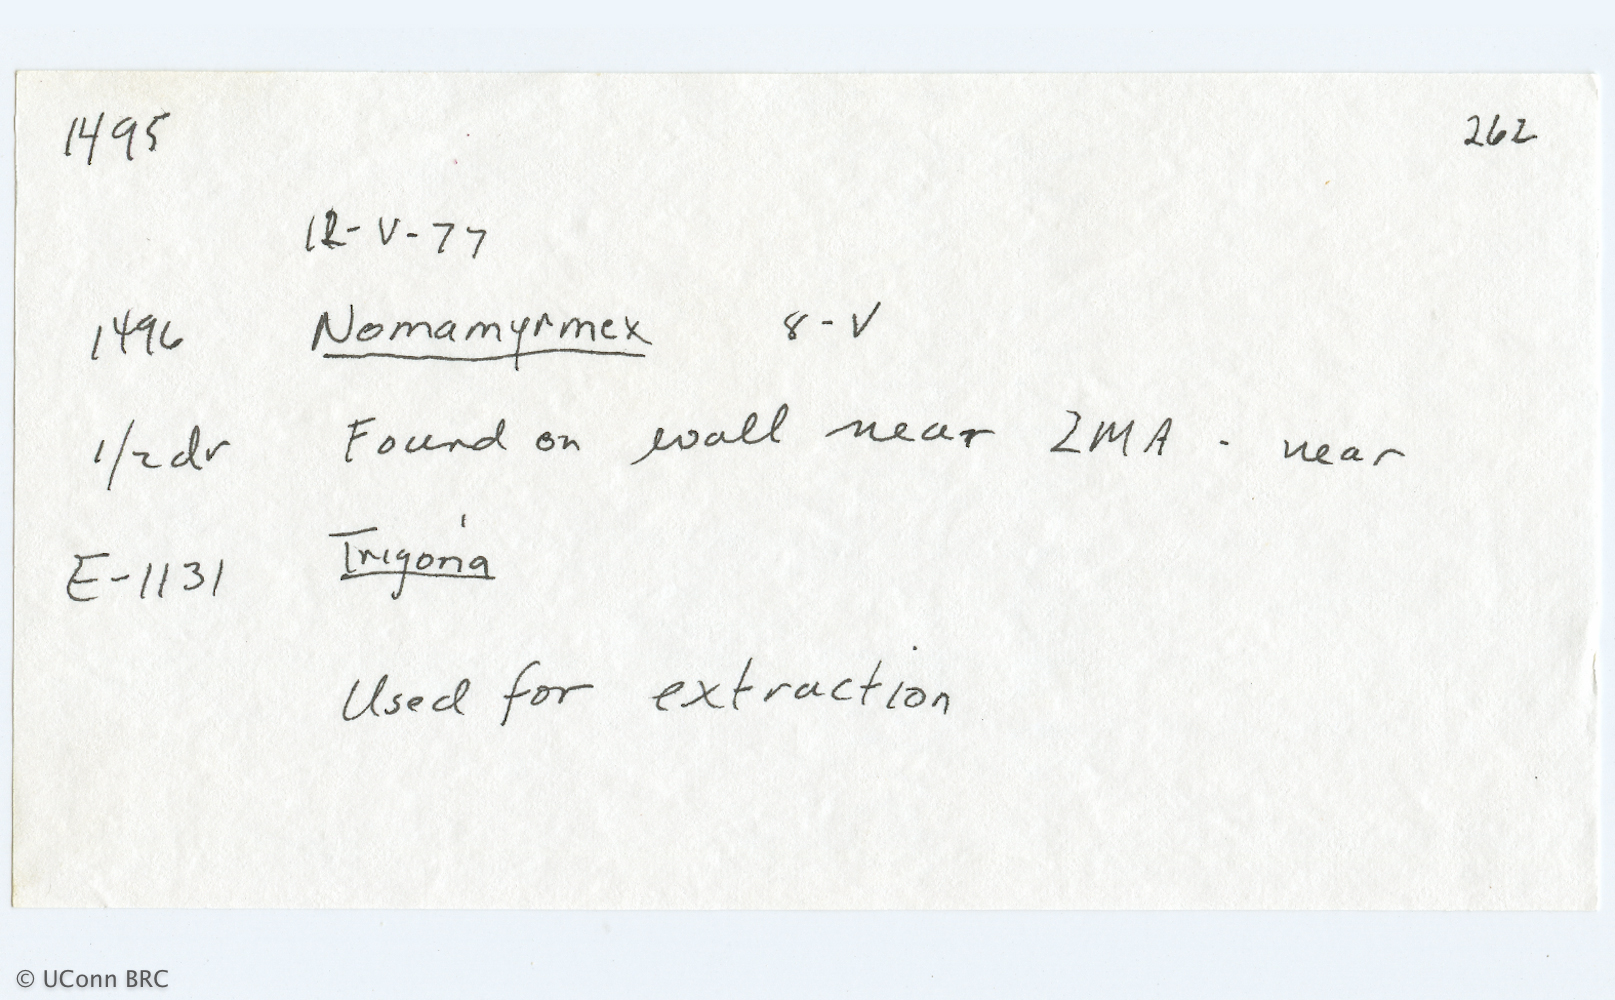 1495 262
12-V-77
1496 Nomamyrmex 8-V
1/2 dr Found on wall near ZMA - near
E-1131 Trigona
Used for extraction
© UConn BRC